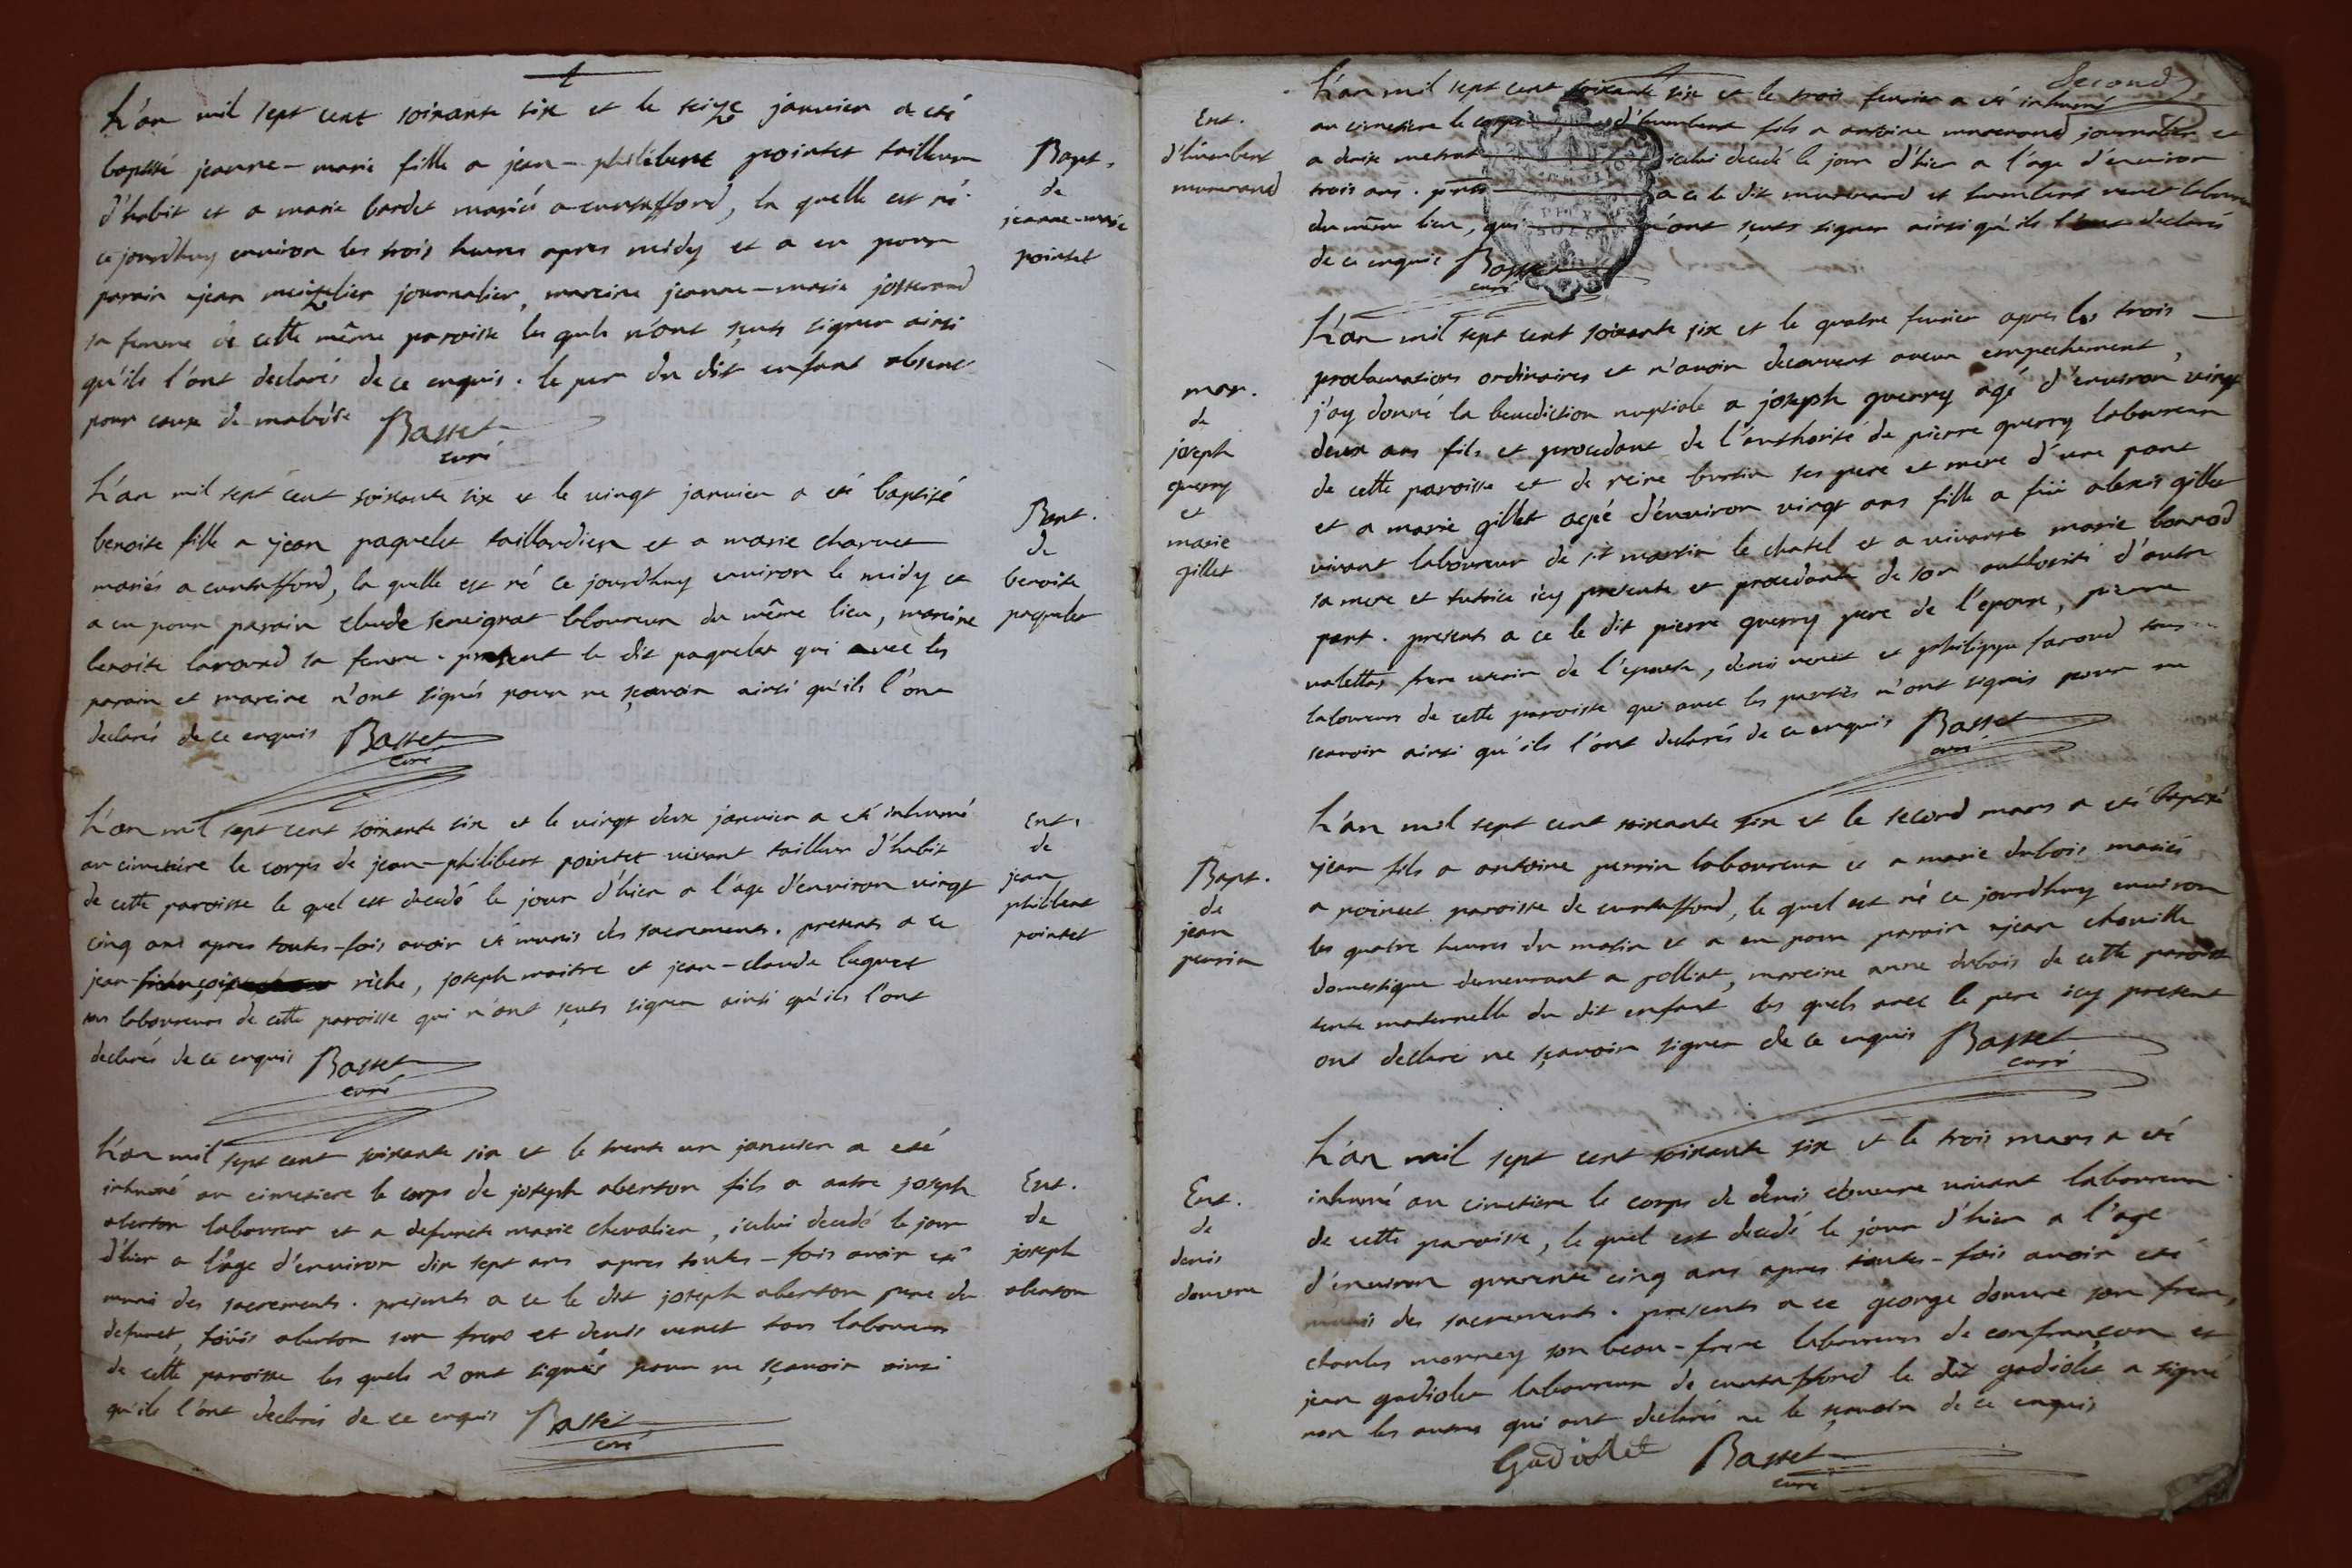 L'an mil sept cent soixante six et le seize janvier a eté
baptisé jeanne-marie fille a jean-philibert pointet tailleur
d'habit et a marie bardet mariés a curtaffond, la quelle est né
ce jourdhuy environ les trois heures apres midy et a eu pour
parain jean meizelier journalier, mareine jeanne-marie josserand
sa femme de cette même paroisse les quels n'ont sçuts signer ainsi
qu'ils l'ont declarés de ce enquis. le pere du dit enfant absent
pour cause de maladie Basset
curé
Bapt.
de
jeanne-marie
pointet
L'an mil sept cent soixante six et le vingt janvier a eté baptisé
benoite fille a jean paquelet taillardier et a marie charvet
mariés a curtaffond, la quelle est né ce jourdhuy environ le midy et
a eu pour parain claude servignat laboureur du même lieu, mareine
benoite larourd sa femme. present le dit paquelet qui avec les
parain et mareine n'ont signés pour ne sçavoir ainsi qu'ils l'ont
declarés de ce enquis Basset
curé
Bapt.
de
benoite
paquelet
L'an mil sept cent soixante six et le vingt deux janvier a eté inhumé
au cimetiere le corps de jean-philibert pointet vivant tailleur d'habit
de cette paroisse le quel est decedé le jour d'hier a l'age d'environ vingt
cinq ans apres toutes-fois avoir eté munis des sacrements. presents a ce
jean-françois riche, joseph maitre et jean-claude luquet
tous laboureurs de cette paroisse qui n'ont sçuts signer ainsi qu'ils l'ont
declarés de ce enquis Basset
curé
Ent.
de
jean
philibert
pointet
L'an mil sept cent soixante six et le trente un janvier a eté
inhumé au cimetiere le corps de joseph oberton fils a autre joseph
oberton laboureur et a defuncte marie chevalier, icelui decedé le jour
d'hier a l'age d'environ dix sept ans apres toutes-fois avoir eté
muni des sacrements. presents a ce le dit joseph oberton pere du
defunct, loüis oberton son frere et denis venet tous laboureurs
de cette paroisse les quels n'ont signés pour ne sçavoir ainsi
qu'ils l'ont declarés de ce enquis Basset
curé
Ent.
de
joseph
oberton
Second
L'an mil sept cent soixante six et le trois fevrier a eté inhumé
au cimetiere le corps d'humbert fils a antoine morerand journalier et
a denise metrat icelui decedé le jour d'hier a l'age d'environ
trois ans. pnts a ce le dit morerand et humbert venet laboureur
du même lieu, qui n'ont sçuts signer ainsi qu'ils l'ont declarés
de ce enquis Basset
curé
Ent.
d'humbert
morerand
L'an mil sept cent soixante six et le quatre fevrier apres les trois
proclamations ordinaires et n'avoir decouvert aucun empechement,
j'ay donné la benediction nuptiale a joseph querry agé d'environ vingt
deux ans fils et procedant de l'authorité de pierre querry laboureur
de cette paroisse et de reine burtin ses pere et mere d'une part
et a marie gillet agée d'environ vingt ans fille a feü alexis gillet
vivant laboureur de st martin le chatel et a vivante marie bonrod
sa mere et tutrice icy presente et procedante de son authorité d'autre
part. presents a ce le dit pierre querry pere de l'epoux, pierre
valettas frere uterin de l'epouse, denis venet et philippe faroud tous
laboureurs de cette paroisse qui avec les parties n'ont signés pour ne
scavoir ainsi qu'ils l'ont declarés de ce enquis Basset
curé
mar.
de
joseph
querry
et
marie
gillet
L'an mil sept cent soixante six et le second mars a eté baptisé
jean fils a antoine perrin laboureur et a marie dubois mariés
a poincet paroisse de curtaffond, le quel est né ce jourdhuy environ
les quatre heures du matin et a eu pour parain jean chouille
domestique demeurant a polliat, mareine anne dubois de cette paroisse
tante maternelle du dit enfant les quels avec le pere icy present
ont declaré ne sçavoir signer de ce enquis Basset
curé
Bapt.
de
jean
perrin
L'an mil sept cent soixante six et le trois mars a eté
inhumé au cimetiere le corps de denis donvere vivant laboureur
de cette paroisse, le quel est decedé le jour d'hier a l'age
d'environ quarente cinq ans apres toutes-fois avoir eté
munis des sacrements. presents a ce george donvere son frere,
charles morney son beau-frere laboureurs de confrançon et
jean gadiolet laboureur de curtaffond le dit gadiolet a signé
non les autres qui ont declarés ne le sçavoir de ce enquis
Gadiollet Basset
curé
Ent.
de
denis
donvere